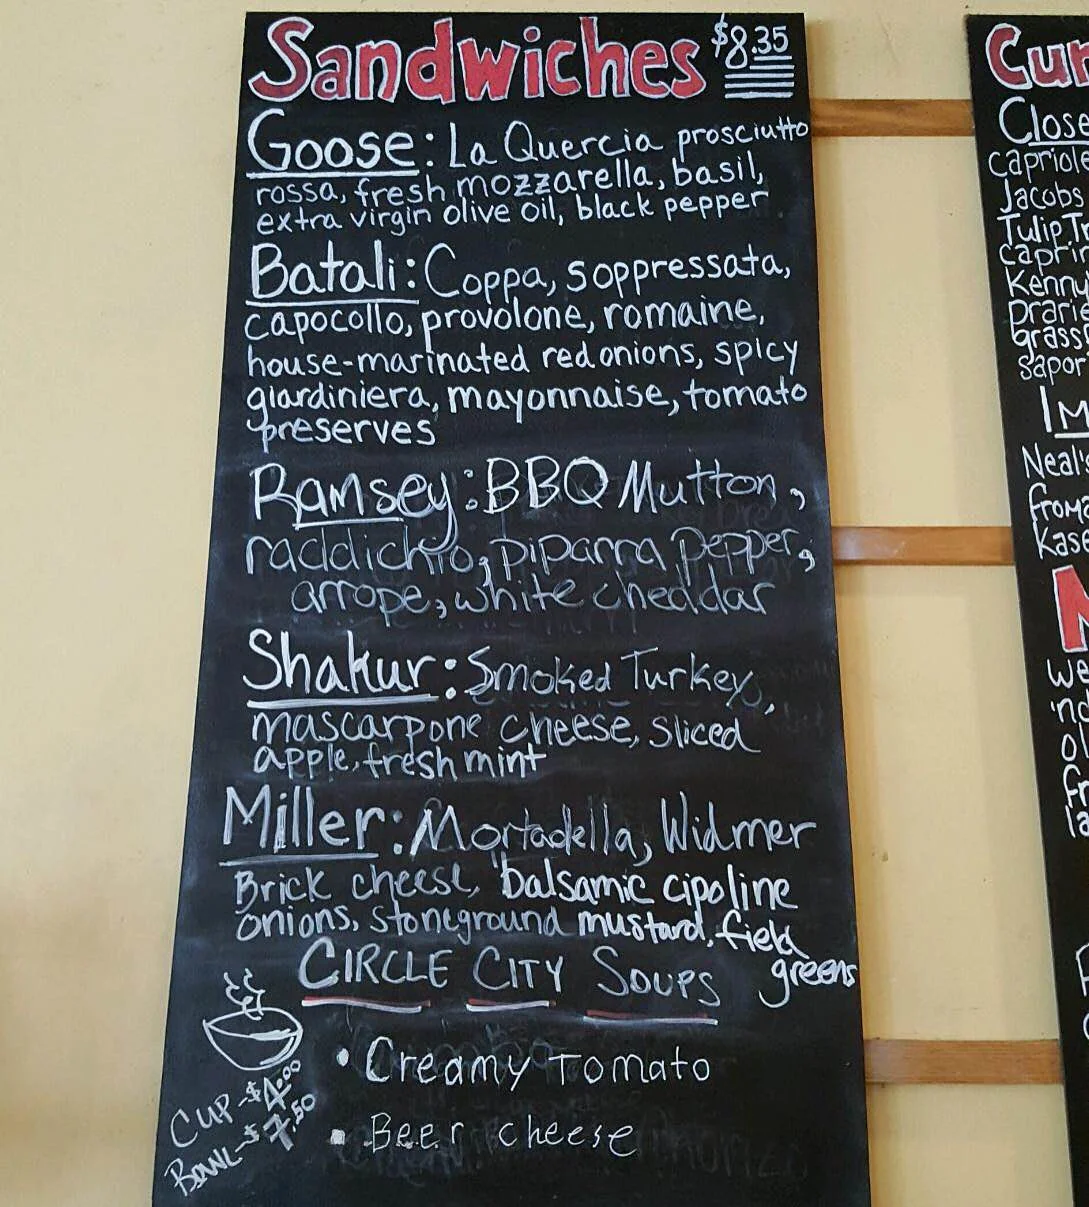 Sandwiches $8.35
Goose: La Quercia prosciutto
rossa, fresh mozzarella, basil,
extra virgin olive oil, black pepper
Batali: Coppa, soppressata,
capocollo, provolone, romaine,
house-marinated red onions, spicy
giardiniera, mayonnaise, tomato
preserves
Ramsey: BBQ Mutton,
raddichio, piparra pepper,
arrope, white cheddar
Shakur: Smoked Turkey,
mascarpone cheese, sliced
apple, fresh mint
Miller: Mortadella, Widmer
Brick cheese, balsamic cipoline
onions, stoneground mustard, field
greens
CIRCLE CITY SOUPS
• Creamy Tomato
• Beer cheese
CUP - $4.00
BOWL - $7.50
Cur
Close
capriole
Jacobs
Tulip Tr
caprin
Kenny
prarie
grass
sapor
Im
Neal's
froma
Kase
N
we